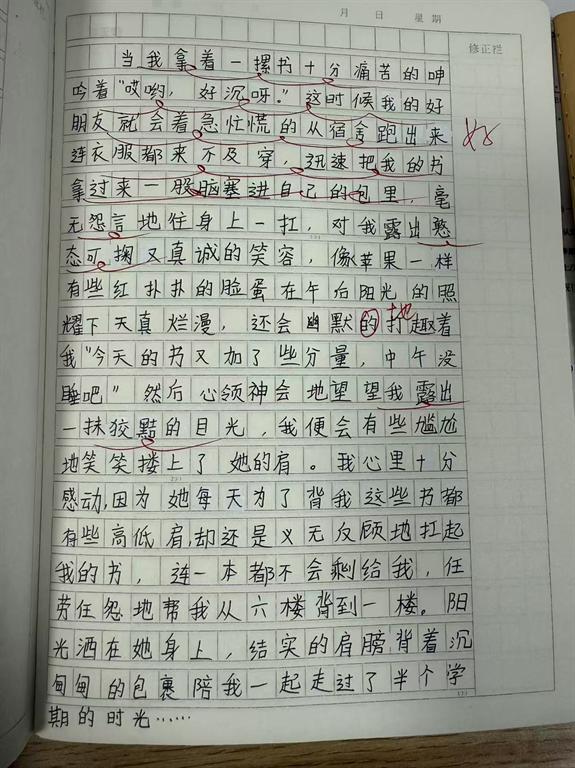 月 日 星期
修正栏
当我拿着一摞书十分痛苦的呻
吟着“哎哟，好沉呀。”这时候我的好
朋友就会着急忙慌的从宿舍跑出来
连衣服都来不及穿，迅速把我的书
拿过来一股脑塞进自己的包里，毫
无怨言地往身上一扛，对我露出憨
态可掬又真诚的笑容，像苹果一样
有些红扑扑的脸蛋在午后阳光的照
耀下天真烂漫，还会幽默的打趣着
地
我“今天的书又加了些分量，中午没
睡吧”然后心领神会地望望我露出
一抹狡黠的目光，我便会有些尴尬
地笑笑搂上了她的肩。我心里十分
感动,因为她每天为了背我这些书都
有些高低肩,却还是义无反顾地扛起
我的书，连一本都不会剩给我，任
劳任怨地帮我从六楼背到一楼。阳
光洒在她身上，结实的肩膀背着沉
甸甸的包裹陪我一起走过了半个学
期的时光……